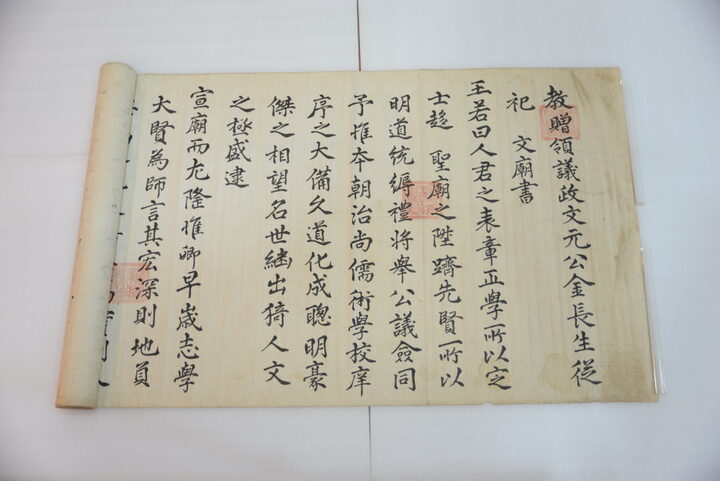 教贈領議政文元公金長生從
祀 文廟書
王若曰人君之表章正學所以定
士趍 聖廟之陞躋先賢所以
明道統縟禮將舉公議僉同
予惟本朝治尚儒術學校庠
序之大備久道化成聰明豪
傑之相望名世繼出猗人文
之極盛逮
宣廟而尤隆惟卿早歲志學
大賢為師言其宏深則地負